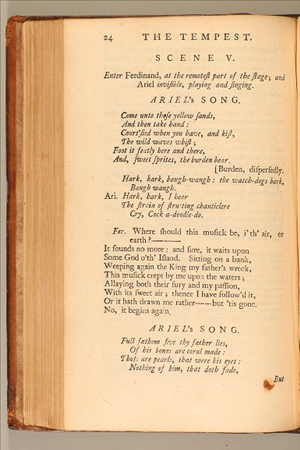 24 THE TEMPEST.
SCENE V.
Enter Ferdinand, at the remoteſt part of the ſtage; and
Ariel inviſible, playing and ſinging.
ARIEL's SONG.
Come unto theſe yellow ſands,
And then take hand:
Court'ſied when you have, and kiſt,
The wild waves whiſt;
Foot it featly here and there,
And, ſweet ſprites, the burden bear.
[Burden, diſperſedly.
Hark, hark, baugh-waugh: the watch-dogs bark,
Baugh waugh.
Ari. Hark, hark, I hear
The ſtrain of ſtrutting chanticlere
Cry, Cock-a-doodle-do.
Fer. Where ſhould this muſick be, i' th' air, or
earth?———
It ſounds no more: and ſure, it waits upon
Some God o'th' Iſland. Sitting on a bank,
Weeping again the King my father's wreck,
This muſick crept by me upon the waters;
Allaying both their fury and my paſſion,
With its ſweet air; thence I have follow'd it,
Or it hath drawn me rather——but 'tis gone.
No, it begins again.
ARIEL's SONG.
Full fathom five thy father lies,
Of his bones are coral made:
Thoſe are pearls, that were his eyes:
Nothing of him, that doth fade,
But